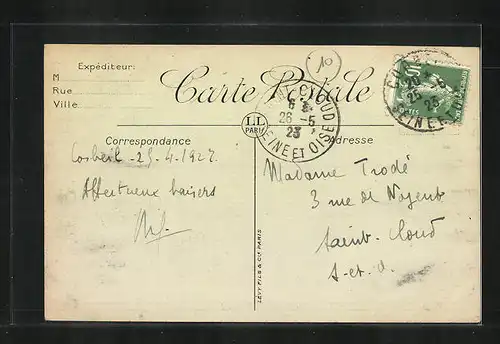 Expéditeur:
M
Rue
Ville
Carte Postale
10
ST CLOUD
26 - 5
23
SEINE ET OISE
LL
PARIS
25
23
SEINE ET OISE
Correspondance
Adresse
Corbeil - 25-4-1927
Affectueux baisers
Madame Trodé
3 rue de Nogent
Saint-Cloud
S-et-O.
LÉVY FILS & Cie PARIS